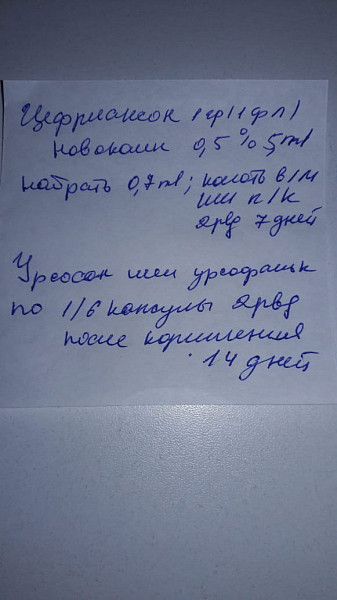 Цефтриаксон 1 гр (1 фл)
новокаин 0,5% 5 ml
набрать 0,7 ml; колоть в/м
или п/к
2рвд 7 дней
Урсосан или урсофальк
по 1/6 капсулы 2рвд
после кормления
14 дней